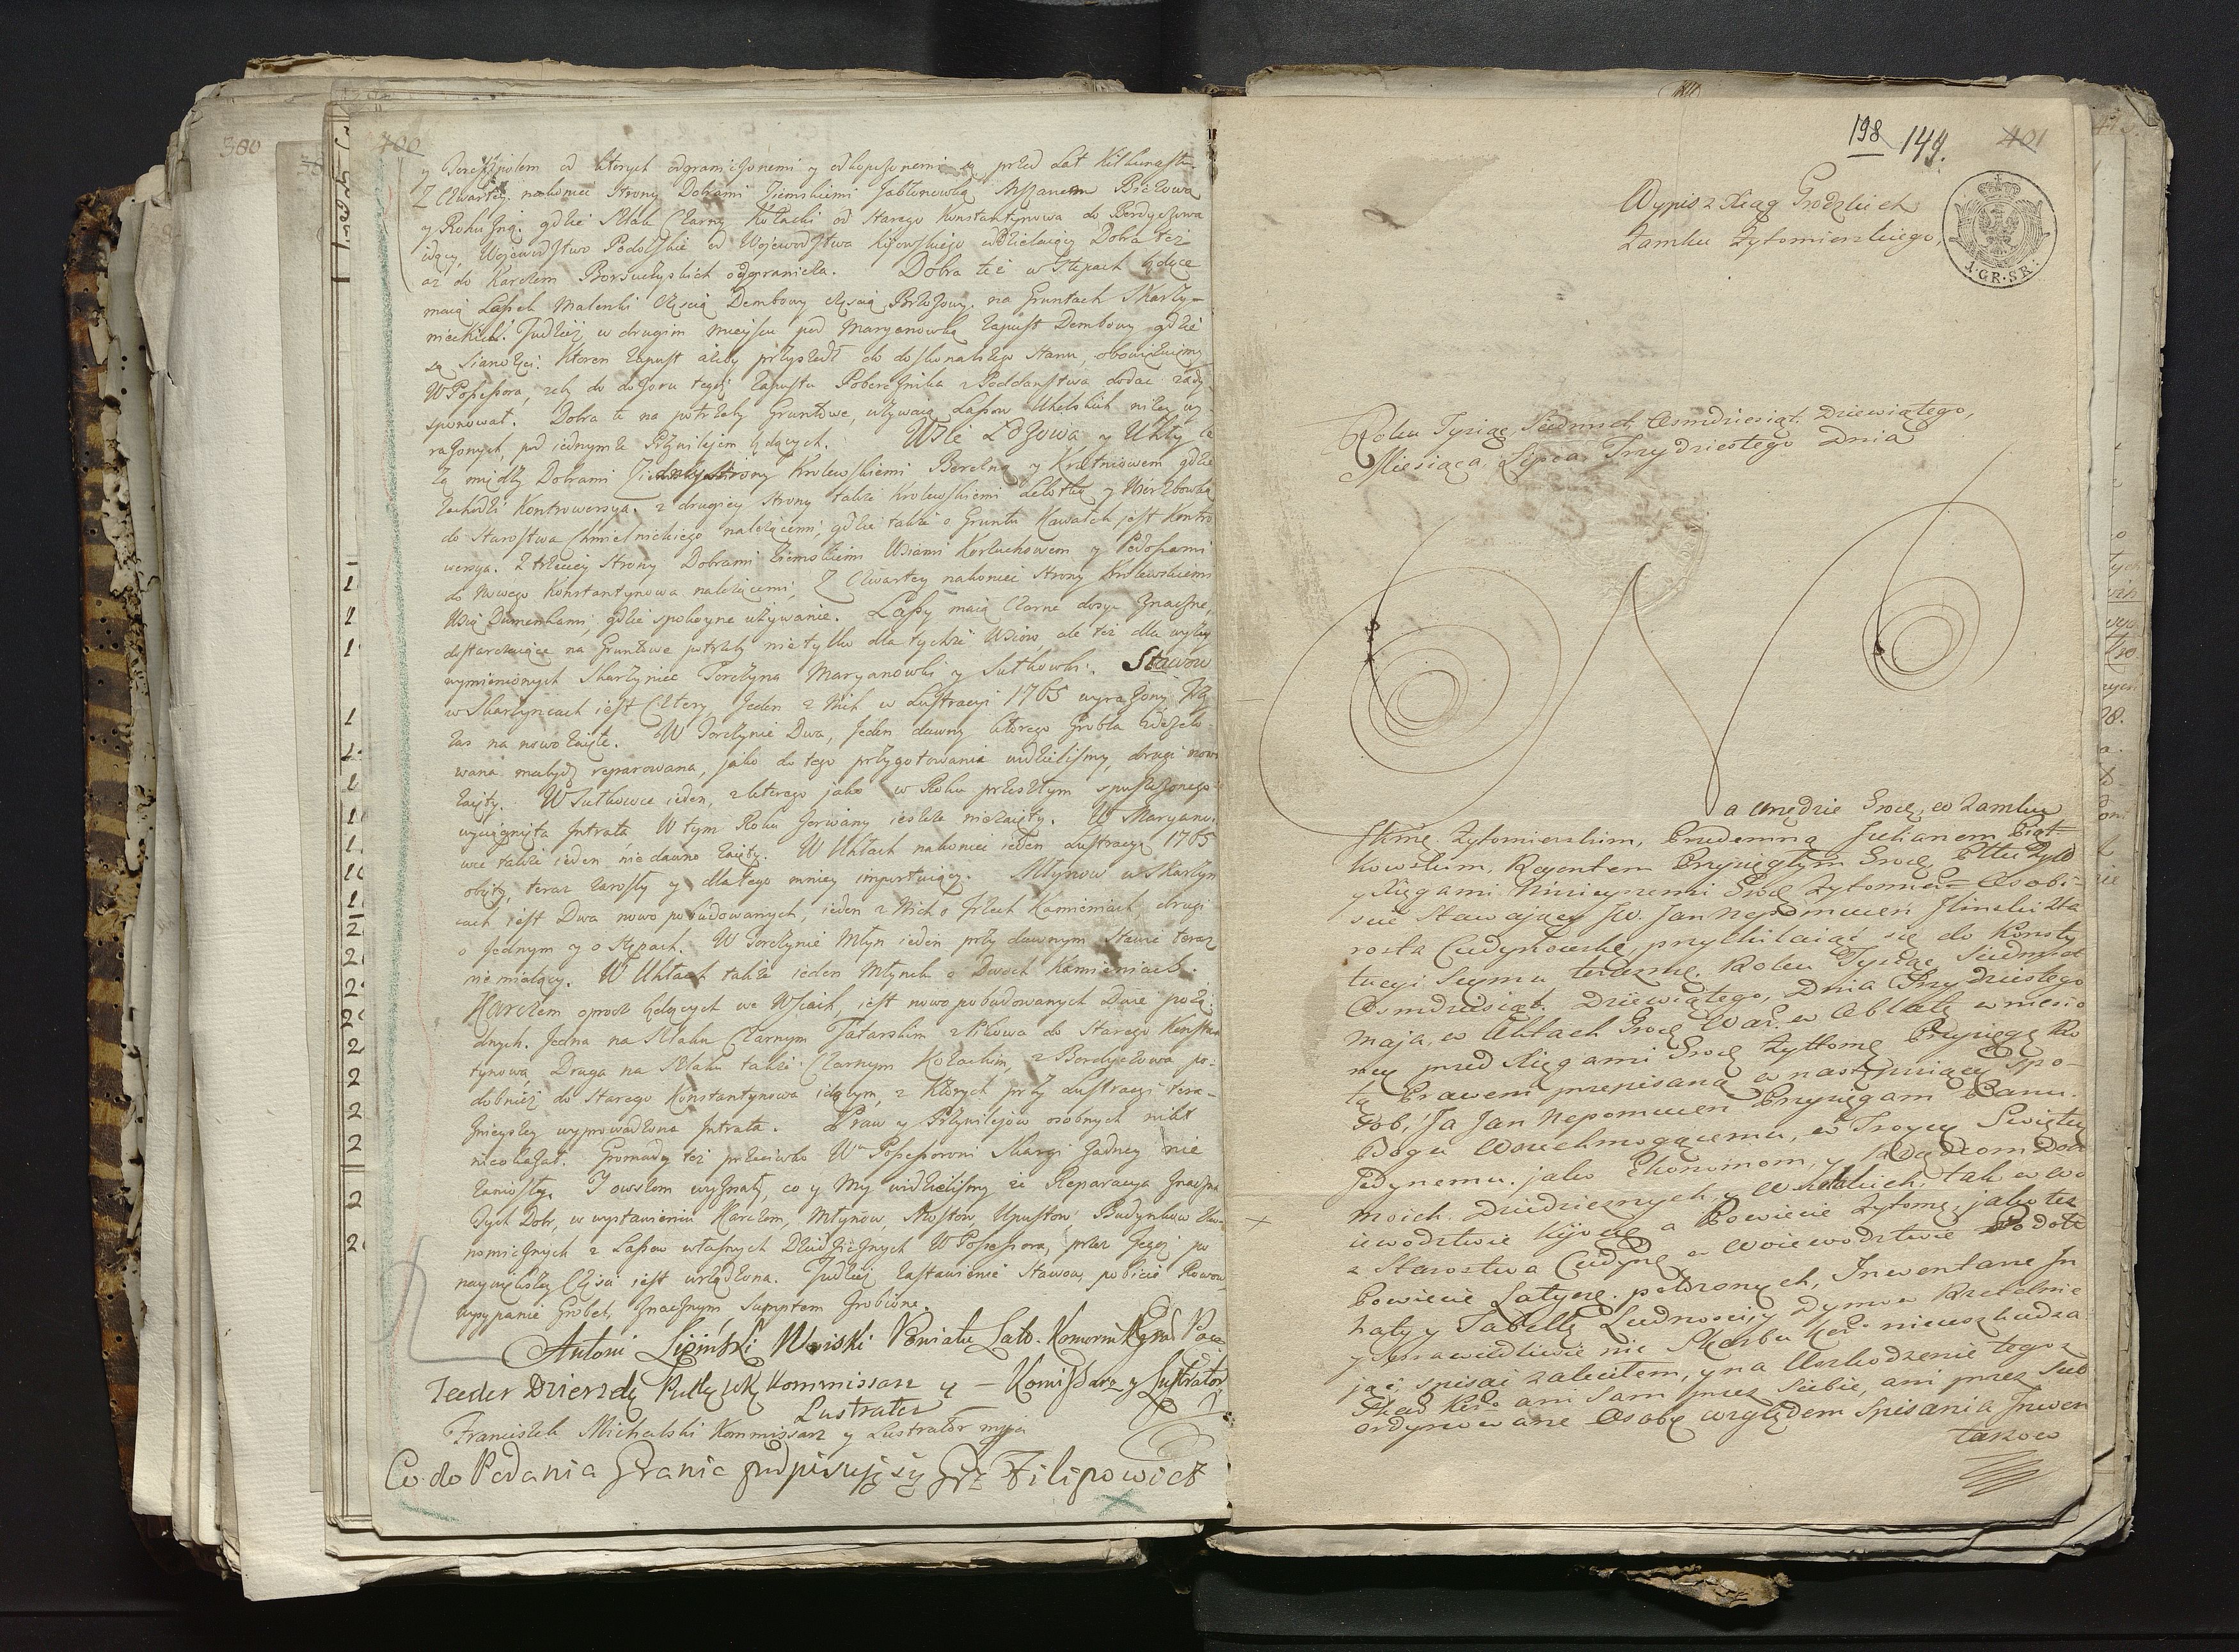 380
400
y Tereszpolem od ktorych ograniczonemi y odkopczonemi są przed Lat Kilkunastu.
Z Czwartey nakoniec Strony Dobrami Ziemskiemi Jabłonowką
y Rohuzną: gdzie Szlak Czarny Kozacki od Starego Konstantynowa do Berdyczowa
idący, Wojewodztwo Podolskie od Wojewodztwa Kijowskiego oddzielaiący Dobra też
az do Karczem Borsuczyskich odgranicza. Dobra te w Stepach będące
maią Lasek Malenki częscią Dembowy częscią Brzozowy na Gruntach Skarzy-
nieckich. Tudzież w drugim mieyscu pod Maryanowką Zapust Dembowy gdzie
są Sianożęci. Ktoren Zapust ażeby przyszedł do doskonalszego Stanu, obowiązuiemy
W Possessora, żeby do dozoru tegoż Zapustu Pobereznika z Poddaństwa dodać zady-
sponował. Dobra te na potrzeby Gruntowe, używaią Lasow Uhelskich niżey wy-
rażonych, pod iednymże Przywilejem będących. Wsie Łozowa y Uhły le
żą między Dobrami Z iedney Strony Krolewskiemi Berezną y Kretniowem gdzie
zachodzi Kontrowersya. z drugiey Strony także Krolewskiemi Lelotką y Wierzbowką
do Starostwa Chmielnickiego należącemi, gdzie także o Gruntu Kawałek jest Kontro
wersya. Z trzeciey Strony Dobrami Ziemskiemi Wsiami Korzuchowem y Pedosami
do Nowego Konstantynowa należącemi, Z Czwartey nakoniec Strony Krolewskiemi
Wsią Dumenkami, gdzie spokoyne używanie. Lassy maią Czarne dosyć znaczne,
dostarczaiące na Gruntowe potrzeby nie tylko dla tychże Wsiow ale też dla wyżey
wymienionych Skarzyniec Torczyna Maryanowki y Sutkowki. Stawow
w Skarzyncach iest Cztery Jeden z Nich w Lustracyi 1765 wyrażony Trzy
zas na nowo zaięte. W Torczynie Dwa, Jeden dawny ktorego Grobla
wana małydz reparowana, jako do tego przygotowania widzieliśmy, drugi nowo
zaięty. W Sutkowce ieden, z ktorego jako w Roku przeszłym spuszczonego
wyciągnięta Jntrata W tym Roku Zerwany ieszcze niezaięty. W Maryano-
wce także ieden nie dawno zaięty. W Uhłach nakoniec ieden Lustracyą 1765
obięty, teraz zarosły y dlatego mniey importuiący. Młynow w Skarzyn
cach iest Dwa nowo pobudowanych, ieden z Nich o Trzech Kamieniach drugi
o Jednym y o Stępach. W Torczynie Młyn ieden przy dawnym Stawie teraz
niemielący. W Uhłach także ieden Młynek o Dwoch Kamieniach.
Karczem oprocz będących we Wsiach, iest nowo pobudowanych Dwie poża-
dnych. Jedna na Szlaku Czarnym Tatarskim z Pikowa do Starego Konstan
tynowa Druga na Szlaku także Czarnym Kozackim, z Berdyczowa po-
dobnież do Starego Konstantynowa idącym, z Których przy Lustracyi tera-
znieyszey wyprowadzona Jntrata. Praw y Przywilejow osobnych nikt
nieokazał. Gromady też przeciwko Wmu Possessorowi Skargi żadney nie
zaniosły. I owszem wyznały, co y My widzieliśmy że Reparacya znaczna
Tych Dobr, w wystawieniu Karczem, Młynow, Mostow, Upustow, Budynkow
nomicznych z Lasow własnych Dziedzicznych W Possessora, przez Jegoż po
naywiększey Części iest urządzona. Tudzież Zastawienie Stawow, pobicie Rowow
wysypanie Grobel, znacznym Sumptem zrobione.
Antoni Lipiński Woiski Powiatu Lato. Komornik Gra:
Teodor Dzierzdę Kommissarz y — Komissarz y Lustrator
Lustrator
Franciszek Michalski Kommissarz y Lustrator mpia
Co do Podania Granic podpisuję się Grz Filipowicz
198 149. 401
Wypis z Xiąg Grodzkich
Zamku Żytomierskiego,
1·GR·SR:
Roku Tysiąc Siedmset Osmdziesiąt Dziewiątego,
Miesiąca Lipca Trzydziestego Dnia
Na Urzędzie Grod, w Zamku
JKMę Żytomierskim, Przedemną Julianem Piąt-
kowskim, Regentem Przysięgłym Grod,
y Xięgami Ninieyszemi Grod Żytomier= Osobi-
scie Stawaiący JW. Jan Nepomucen Jlinski Sta
rosta Cudynowski, przychilaiąc się do Konsty
tucyi Seymu teraznę. Roku Tysiąc Siedmset
Osmdziesiąt Dziewiątego, Dnia Trzydziestego
Maja, w Aktach Grod War. w Oblatę wniesio
ney przed Xięgami Grod Żytomę Przysięgę Ro
tą Prawem przepisaną w następuiący spo-
sob, Ja Jan Nepomucen Przysięgam Panu
Bogu Wszechmogącemu, w Troycy Świętey
Jedynemu. jako Ekonomom, y Rządcom Dobr
moich Dziedzicznych, y Wszelkich tak w Wo
iewodztwie Kijow, a Powiecie Żytomę jako też
z Starostwa Cudynę, w Woiewodztwie Podols
Powiecie Latycz. położonych, Jnwentarze Jn
traty y Tabellę Ludnosci y Dymow Rzetelnie
y sprawiedliwie nic Skarbu Kor. nieuszkadza
jąc, spisać zaleciłem, y na Uszkodzenie tegoż
Skar Kor. ani Sam przez Siebie, ani przez Sub
ordynowane Osoby względem Spisania Jnwen
tarzow